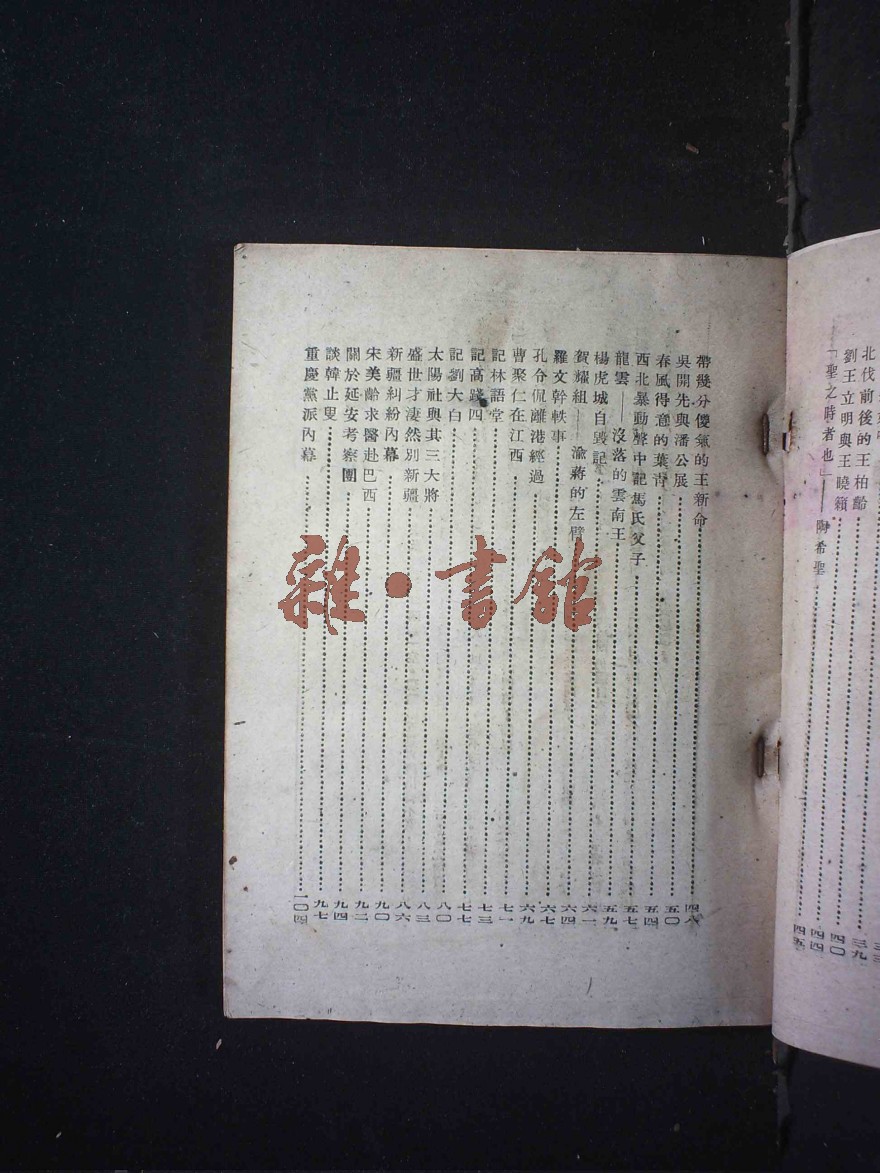 北伐前後的王柏齡……四〇
劉王立明與王曉籟……四四
「聖之時者也」——陶希聖……四五
帶幾分傻氣的王新命……四八
吳開先與潘公展……五〇
春風得意的葉青……五四
西北暴動聲中記馬氏父子……五七
龍雲——沒落的雲南王……五九
楊虎城自毀記……六一
賀耀組——渝蔣的左臂……六四
羅文幹軼事……六七
孔令侃離港經過……六九
曹聚仁在江西……七一
記林語堂……七三
記高踐四……七七
記劉大白……八〇
太陽社與其三大將……八三
盛世才淒然別新疆……八六
新疆糾紛內幕……九〇
宋美齡求醫赴巴西……九二
關於延安考察團……九四
談韓止叟……九七
重慶黨派內幕……一〇四
雜·書館